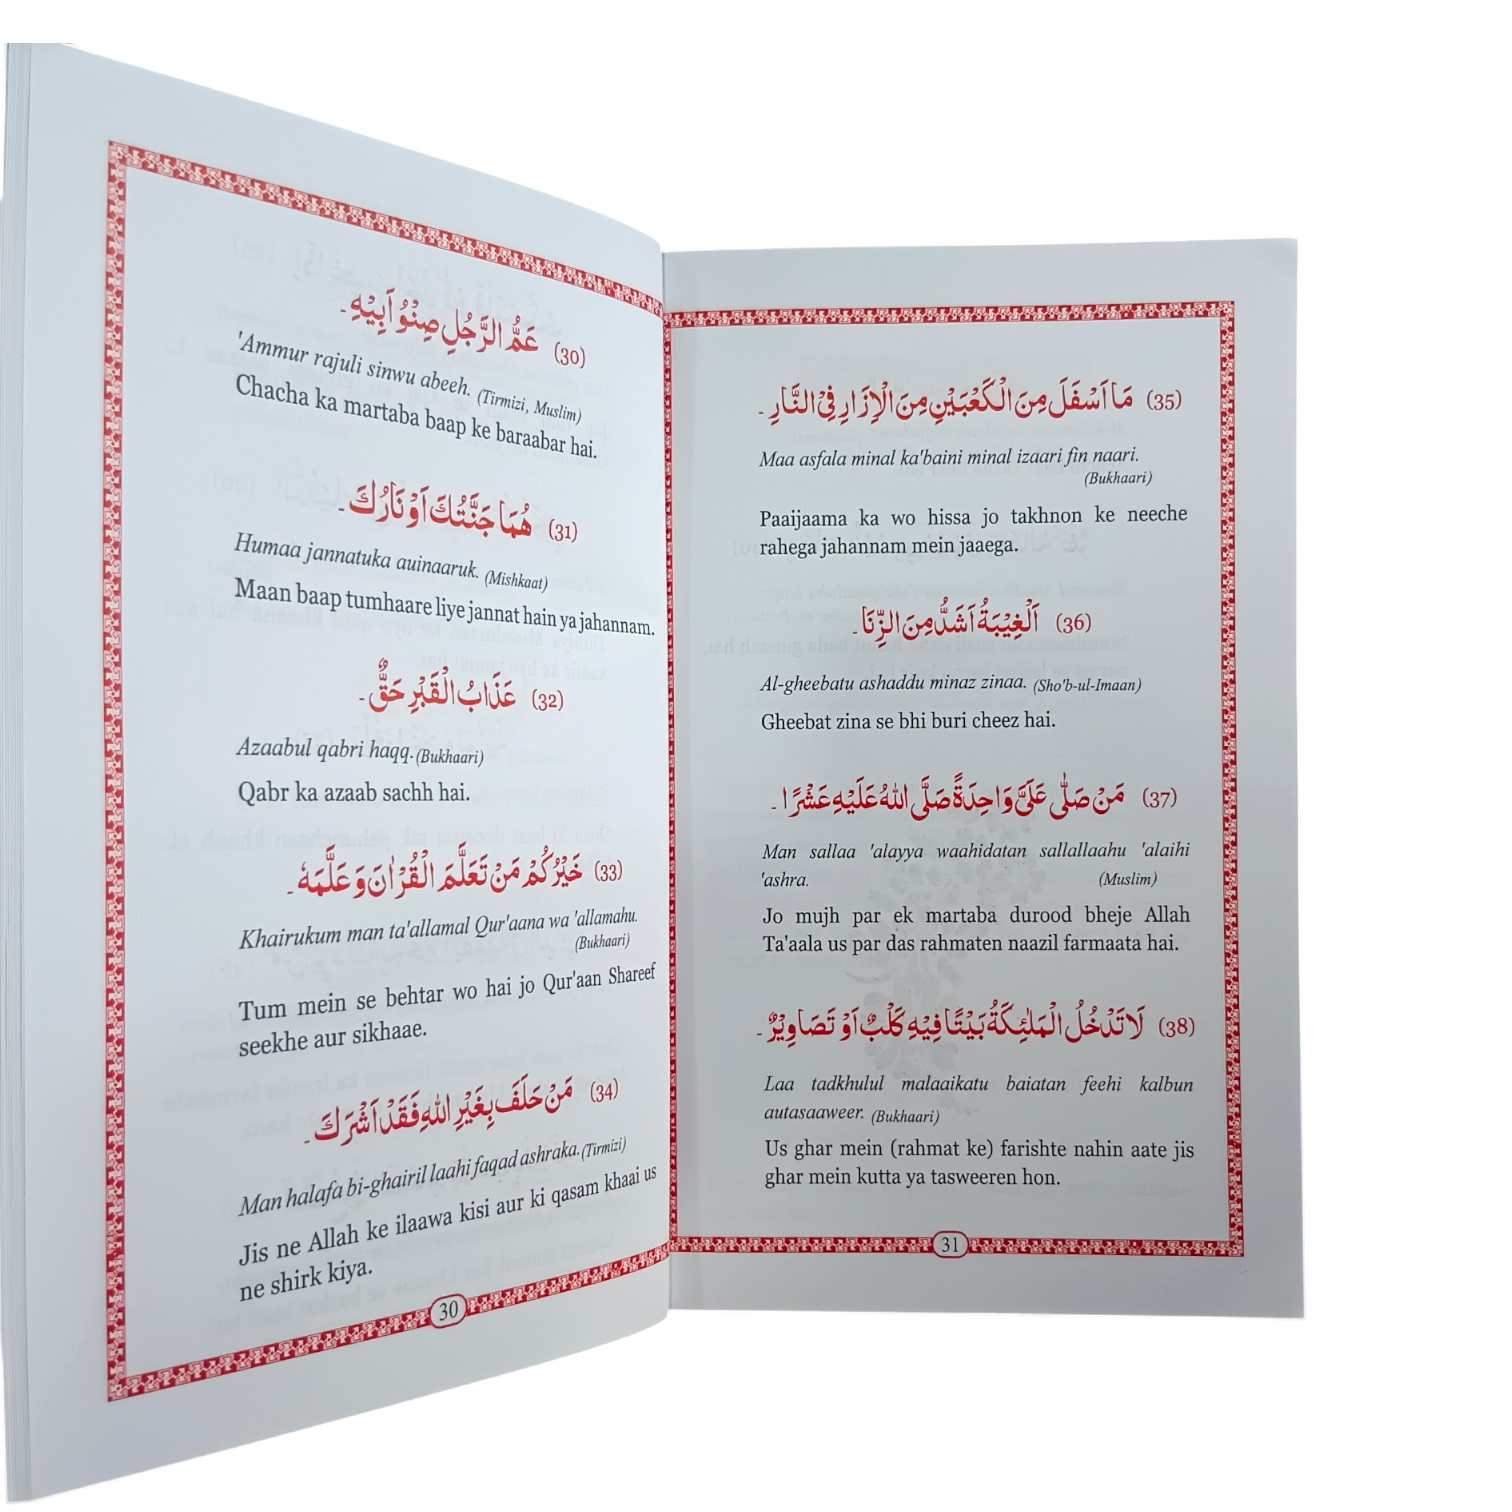 (30) عَمُّ الرَّجُلِ صِنْوُ اَبِيْهِ۔
'Ammur rajuli sinwu abeeh. (Tirmizi, Muslim)
Chacha ka martaba baap ke baraabar hai.
(31) هُمَا جَنَّتُكَ اَوْ نَارُكَ۔
Humaa jannatuka auinaaruk. (Mishkaat)
Maan baap tumhaare liye jannat hain ya jahannam.
(32) عَذَابُ الْقَبْرِ حَقٌّ۔
Azaabul qabri haqq. (Bukhaari)
Qabr ka azaab sachh hai.
(33) خَيْرُكُمْ مَنْ تَعَلَّمَ الْقُرْاٰنَ وَ عَلَّمَهٗ۔
Khairukum man ta'allamal Qur'aana wa 'allamahu.
(Bukhaari)
Tum mein se behtar wo hai jo Qur'aan Shareef
seekhe aur sikhaae.
(34) مَنْ حَلَفَ بِغَيْرِ اللهِ فَقَدْ اَشْرَكَ۔
Man halafa bi-ghairil laahi faqad ashraka. (Tirmizi)
Jis ne Allah ke ilaawa kisi aur ki qasam khaai us
ne shirk kiya.
30
(35) مَا اَسْفَلَ مِنَ الْكَعْبَيْنِ مِنَ الْاِزَارِ فِى النَّارِ۔
Maa asfala minal ka'baini minal izaari fin naari.
(Bukhaari)
Paaijaama ka wo hissa jo takhnon ke neeche
rahega jahannam mein jaaega.
(36) اَلْغِيْبَةُ اَشَدُّ مِنَ الزِّنَا۔
Al-gheebatu ashaddu minaz zinaa. (Sho'b-ul-Imaan)
Gheebat zina se bhi buri cheez hai.
(37) مَنْ صَلّٰى عَلَىَّ وَاحِدَةً صَلَّى اللهُ عَلَيْهِ عَشْرًا۔
Man sallaa 'alayya waahidatan sallallaahu 'alaihi
'ashra. (Muslim)
Jo mujh par ek martaba durood bheje Allah
Ta'aala us par das rahmaten naazil farmaata hai.
(38) لَا تَدْخُلُ الْمَلٰئِكَةُ بَيْتًا فِيْهِ كَلْبٌ اَوْ تَصَاوِيْرٌ۔
Laa tadkhulul malaaikatu baiatan feehi kalbun
autasaaweer. (Bukhaari)
Us ghar mein (rahmat ke) farishte nahin aate jis
ghar mein kutta ya tasweeren hon.
31